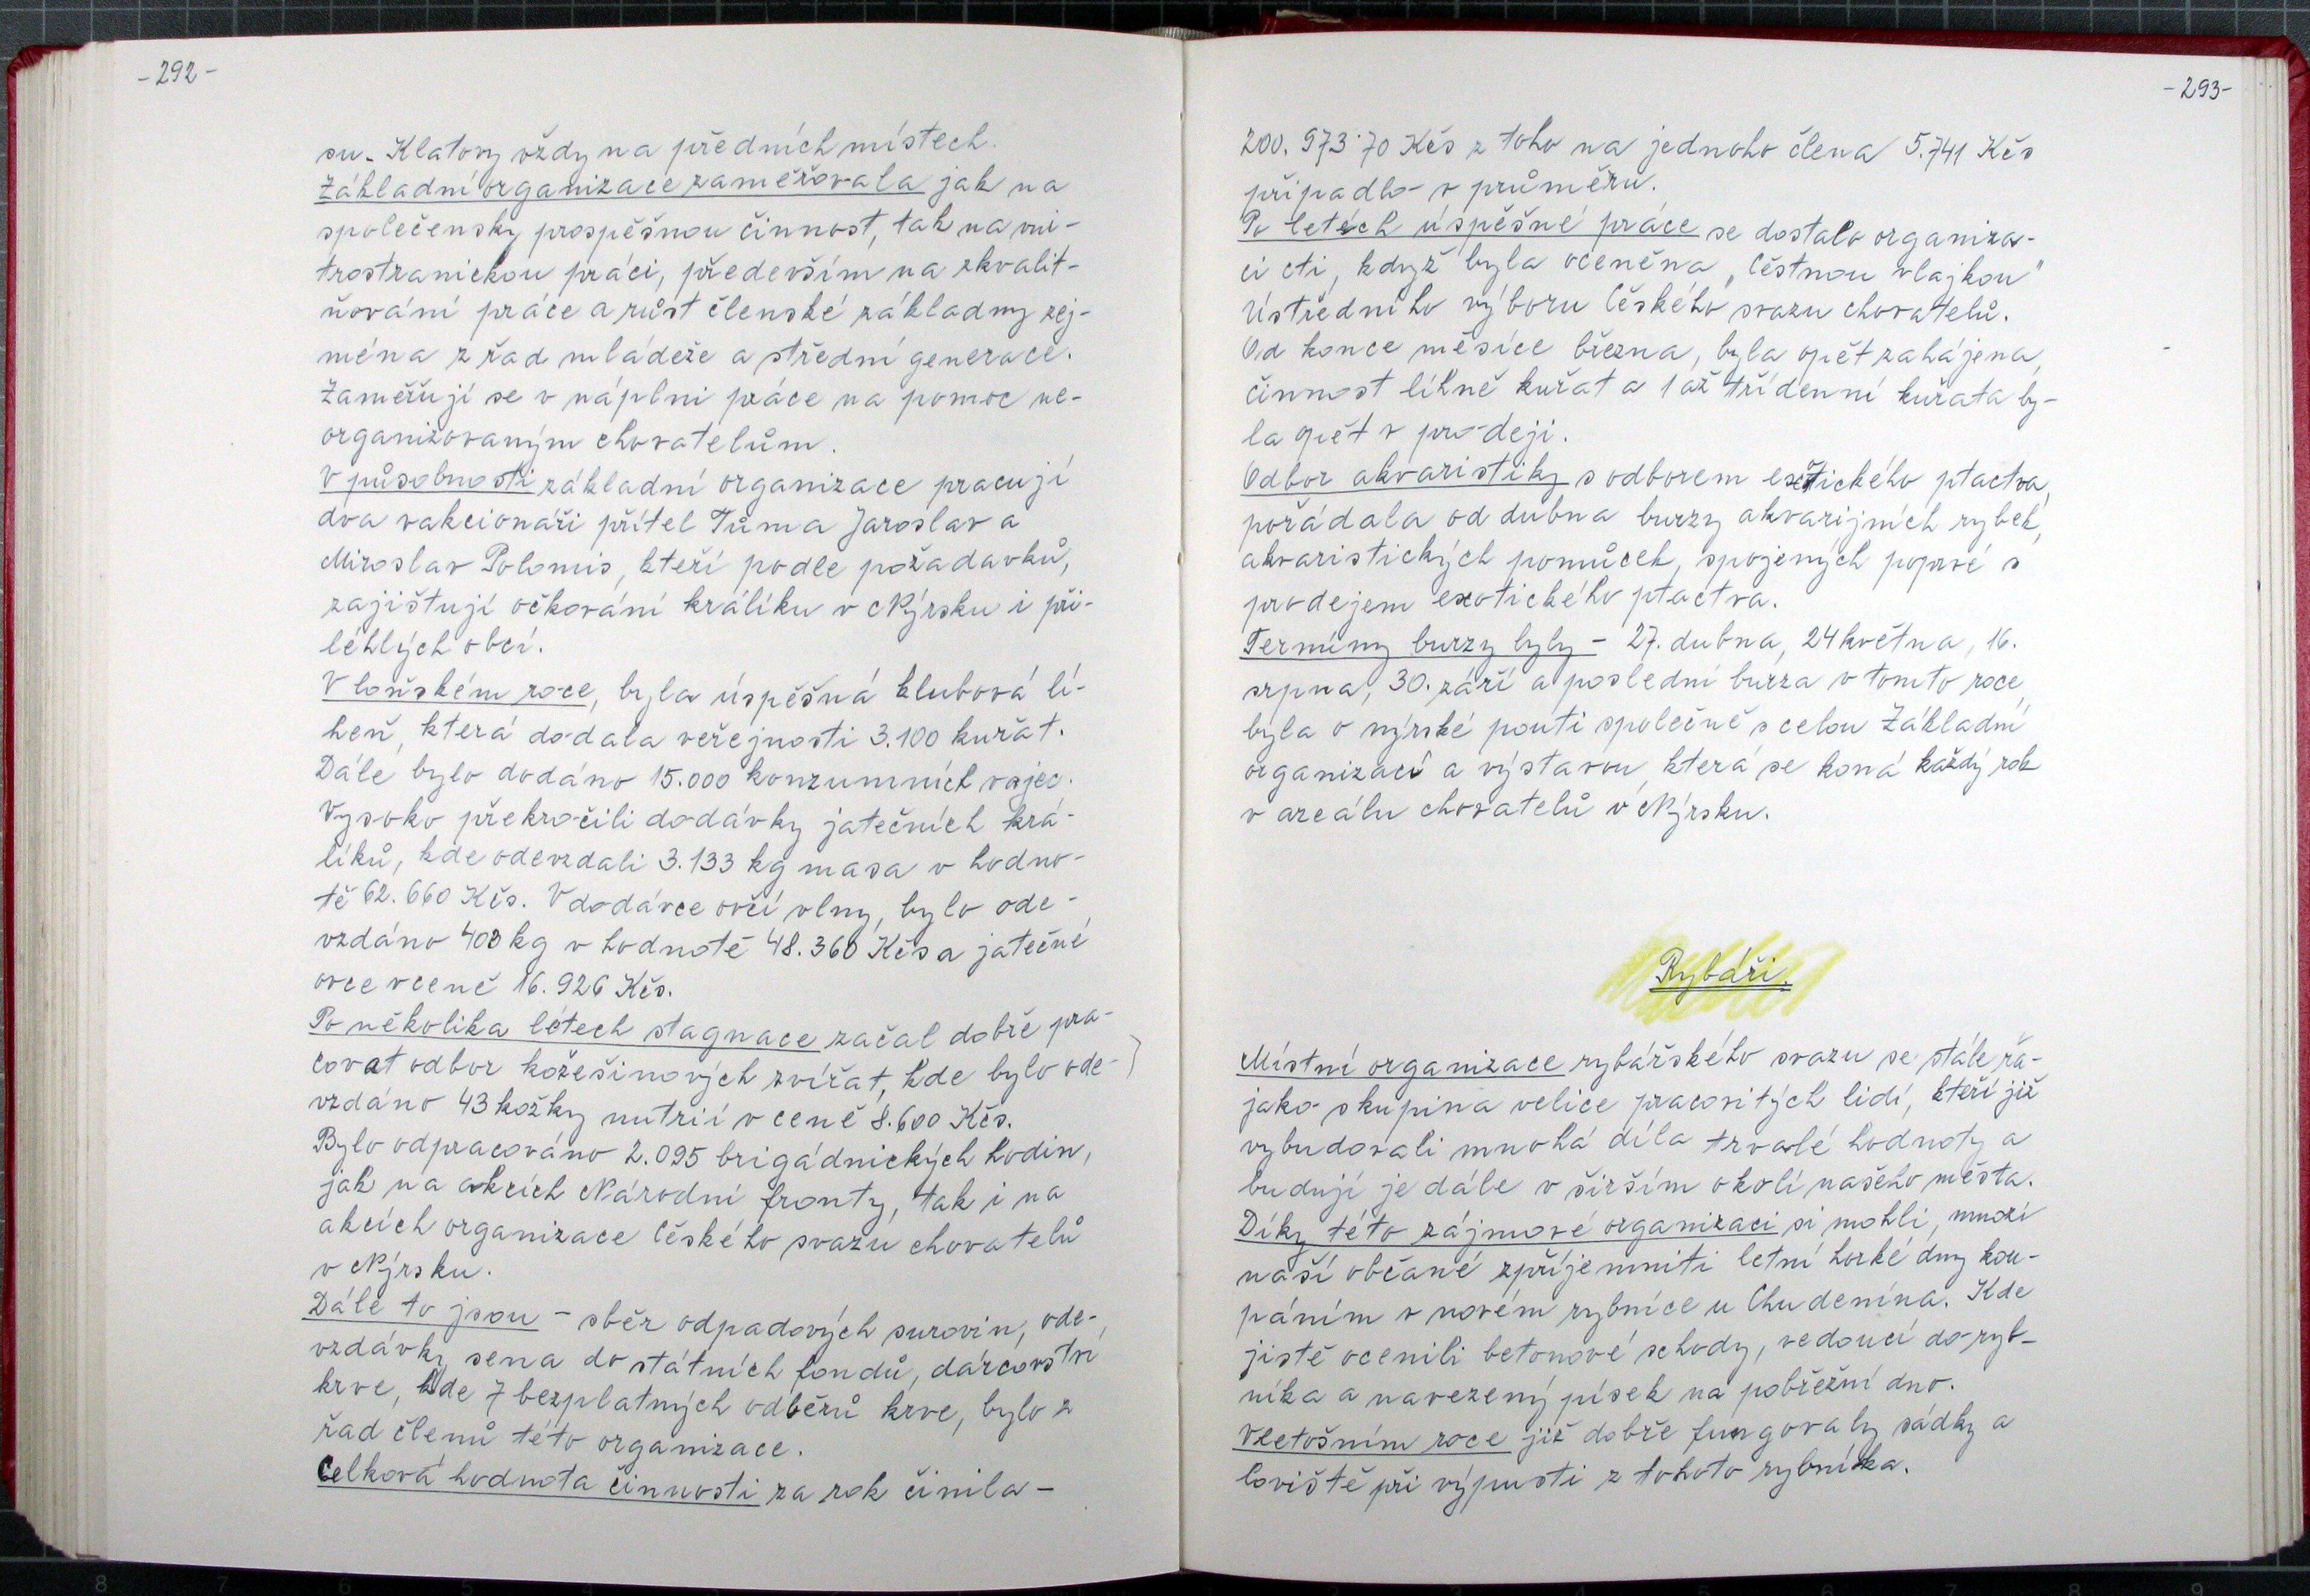 -292-
su. Klatovy vždy na předních místech.
Základní organizace zaměřovala jak na
společensky prospěšnou činnost, tak na vni-
trostranickou práci, především na zkvalit-
ňování práce a růst členské základny zej-
ména z řad mládeže a střední generace.
Zaměřují se v náplni práce na pomoc ne-
organizovaným chovatelům.
V působnosti základní organizace pracují
dva vakcionáři přítel Tůma Jaroslav a
Miroslav Polomis, kteří podle požadavků,
zajištují očkování králíku v Nýrsku i při-
léhlých obcí.
V loňském roce, byla úspěšná klubová lí-
heň, která dodala veřejnosti 3.100 kuřat.
Dále bylo dodáno 15.000 konzumních vajec.
Vysoko překročili dodávky jatečních krá-
líků, kde odevzdali 3.133 kg masa v hodno-
tě 62.660 Kčs. V dodávce ovčí vlny, bylo ode-
vzdáno 403 kg v hodnotě 48.360 Kčs a jatečné
ovce v ceně 16.926 Kčs.
Po několika létech stagnace začal dobře pra-
covat odbor kožešinových zvířat, kde bylo ode-
vzdáno 43 kožky nutrií v ceně 8.600 Kčs.
Bylo odpracováno 2.095 brigádnických hodin,
jak na akcích Národní fronty, tak i na
akcích organizace Českého svazu chovatelů
v Nýrsku.
Dále to jsou - sběr odpadových surovin, ode-
vzdávky sena do státních fondů, dárcovství
krve, kde 7 bezplatných odběrů krve, bylo z
řad členů této organizace.
Celková hodnota činnosti za rok činila -
-293-
200.973.70 Kčs z toho na jednoho člena 5.741 Kčs
připadlo v průměru.
Po letech úspěšné práce se dostalo organiza-
ci cti, když byla oceněna „Čestnou vlajkou"
Ústředního výboru Českého svazu chovatelů.
Od konce měsíce března, byla opět zahájena,
činnost líhně kuřat a 1 až třídenní kuřata by-
la opět v prodeji.
Odbor akvaristiky s odborem exotického ptactva,
pořádala od dubna burzy akvarijních rybek,
akvaristických pomůcek, spojených poprvé s
prodejem exotického ptactva.
Termíny burzy byly - 27. dubna, 24 května, 16.
srpna, 30. září a poslední burza v tomto roce,
byla o nýrské pouti společně s celou Základní
organizací a výstavou, která se koná každý rok
v areálu chovatelů v Nýrsku.
Rybáři.
Místní organizace rybářského svazu se stále řa-
jako skupina velice pracovitých lidí, kteří již
vybudovali mnohá díla trvalé hodnoty a
budují je dále v širším okolí našeho města.
Díky této zájmové organizaci si mohli, mnozí
naší občané zpříjemniti letní horké dny kou-
páním v novém rybníce u Chudenína. Kde
jistě ocenili betonové schody, vedoucí do ryb-
níka a navezený písek na pobřežní dno.
V letošním roce již dobře fungovaly sádky a
loviště při výpusti z tohoto rybníka.